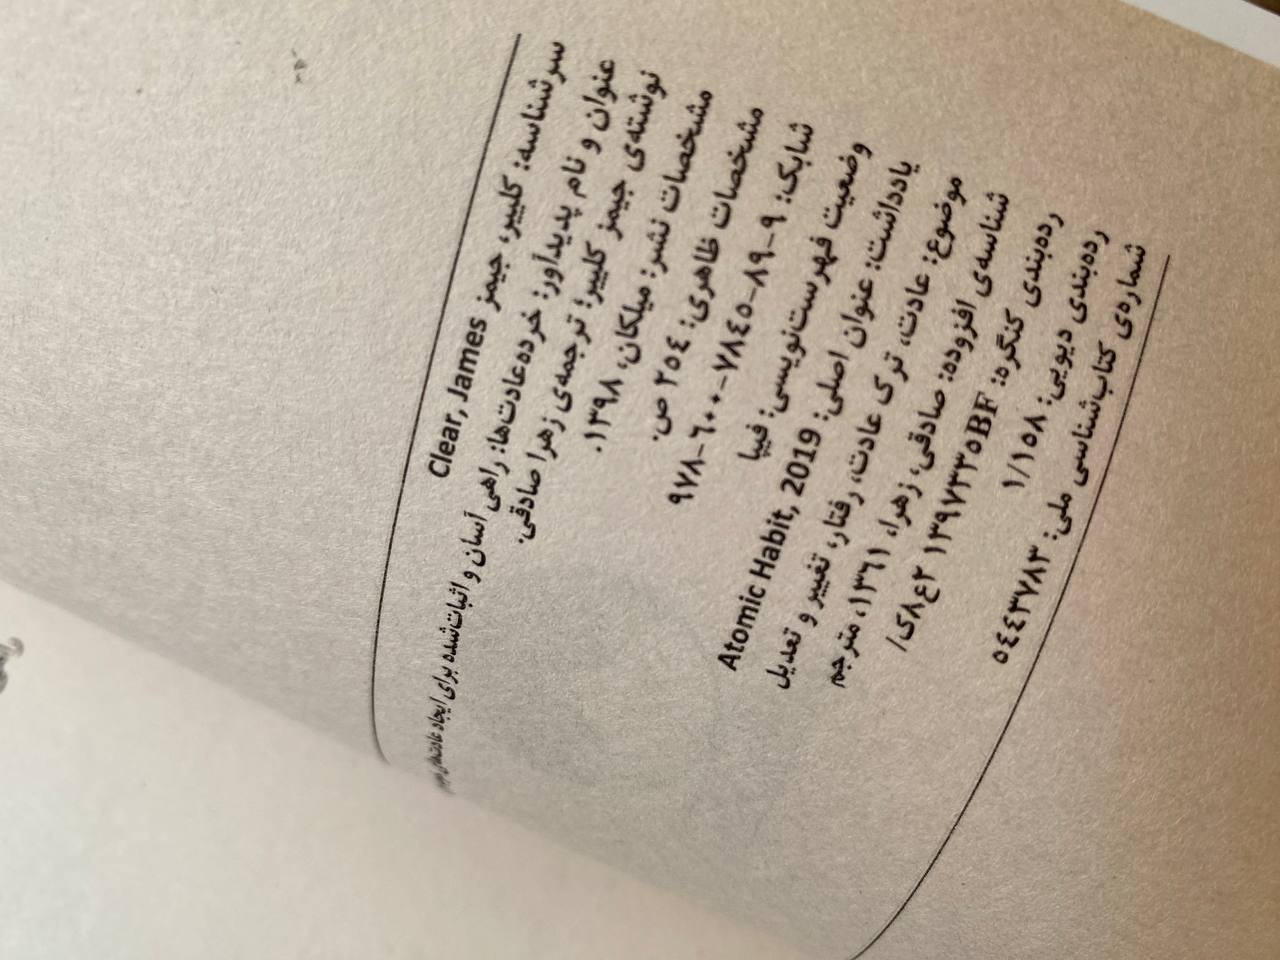 سرشناسه: کلییر، جیمز Clear, James
عنوان و نام پدیدآور: خرده‌عادت‌ها: راهی آسان و اثبات‌شده برای ایجاد عادت‌های
نوشته‌ی جیمز کلییر؛ ترجمه‌ی زهرا صادقی.
مشخصات نشر: میلکان، ۱۳۹۸.
مشخصات ظاهری: ۲۵٤ ص.
شابک: ۹-۸۹-۷۸٤۵-۶۰۰-۹۷۸
وضعیت فهرست‌نویسی: فیپا
یادداشت: عنوان اصلی: Atomic Habit, 2019
موضوع: عادت، ترک عادت، رفتار، تغییر و تعدیل
شناسه‌ی افزوده: صادقی، زهرا، ۱۳۶۱، مترجم
رده‌بندی کنگره: BF۳۳۵ ۱۳۹۷ ۲ع۸ک/
رده‌بندی دیویی: ۱/۱۵۸
شماره‌ی کتاب‌شناسی ملی: ۵٤٤۳۷۸۳